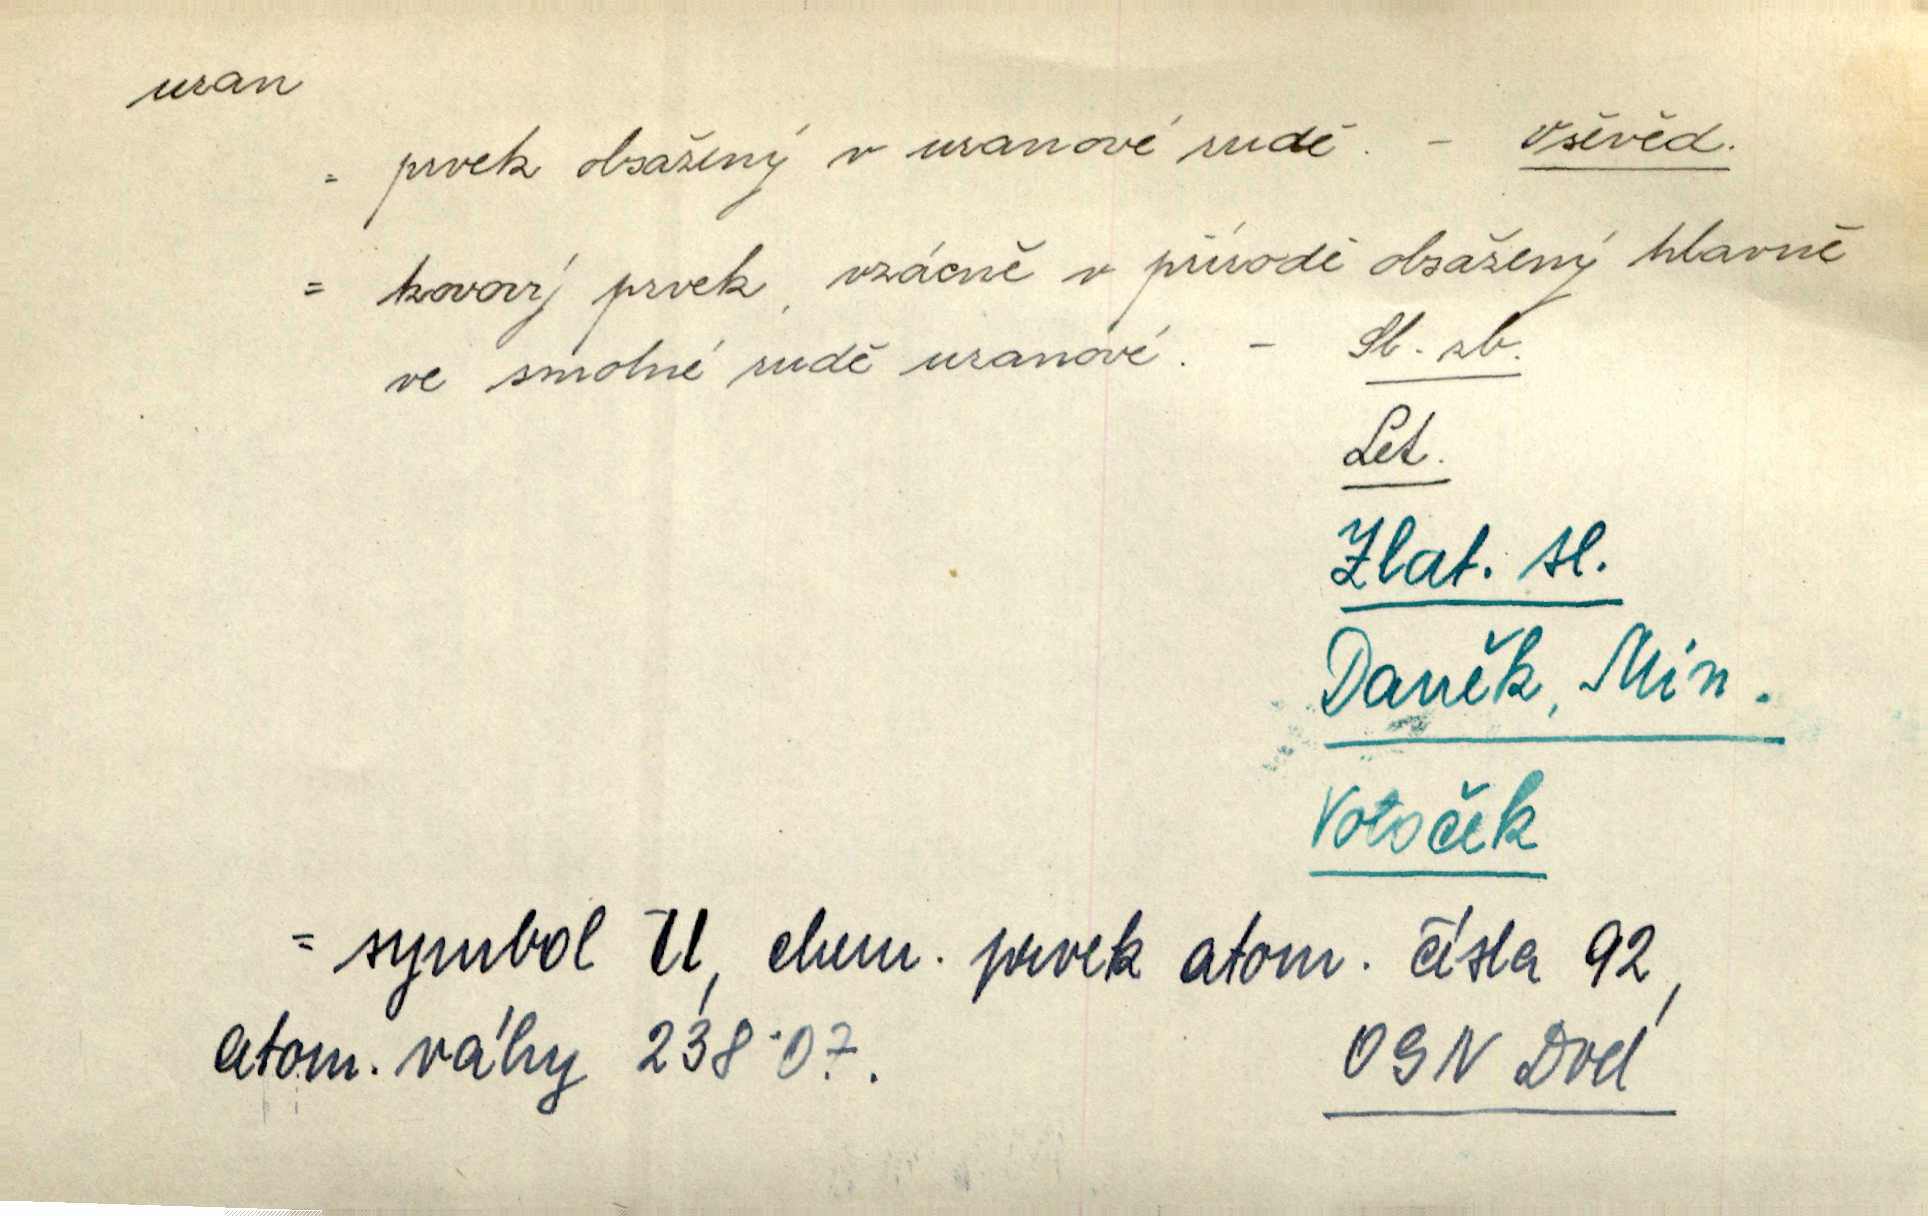 uran
= prvek obsažený v uranové rudě. - Vševěd.
= kovový prvek, vzácně v přírodě obsažený hlavně
ve smolné rudě uranové. - Sl. zb.
Let.
Zlat. sl.
Daněk, Min.
Votoček
= symbol U, chem. prvek atom. čísla 92,
atom. váhy 238·07. OSN Dod